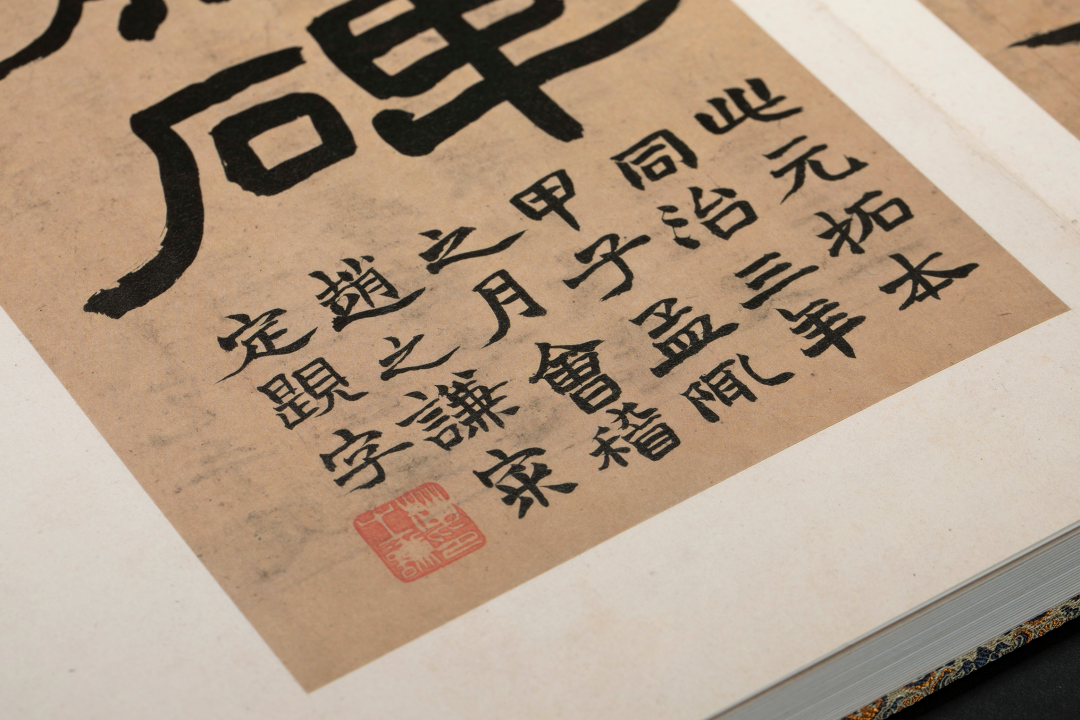 碑
此元拓本
同治三年
甲子孟陬
之月會稽
趙之謙宷
定題字